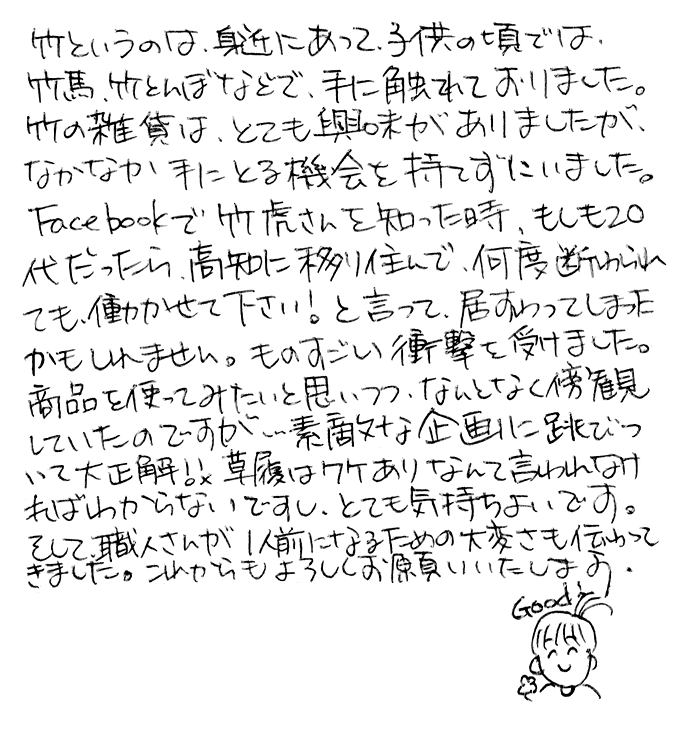 竹というのは、身近にあって、子供の頃では、
竹馬、竹とんぼなどで、手に触れておりました。
竹の雑貨は、とても興味がありましたが、
なかなか手にとる機会を持てずにいました。
Facebookで竹虎さんを知った時、もしも20
代だったら、高知に移り住んで、何度断わられ
ても、働かせて下さい!と言って、居すわってしまった
かもしれません。ものすごい衝撃を受けました。
商品を使ってみたいと思いつつ、なんとなく傍観
していたのですが…素敵な企画に跳びつ
いて大正解!!草履はワケありなんて言われなけ
ればわからないですし、とても気持ちよいです。
そして、職人さんが1人前になるための大変さも伝わって
きました。これからもよろしくお願いいたします。
Good!